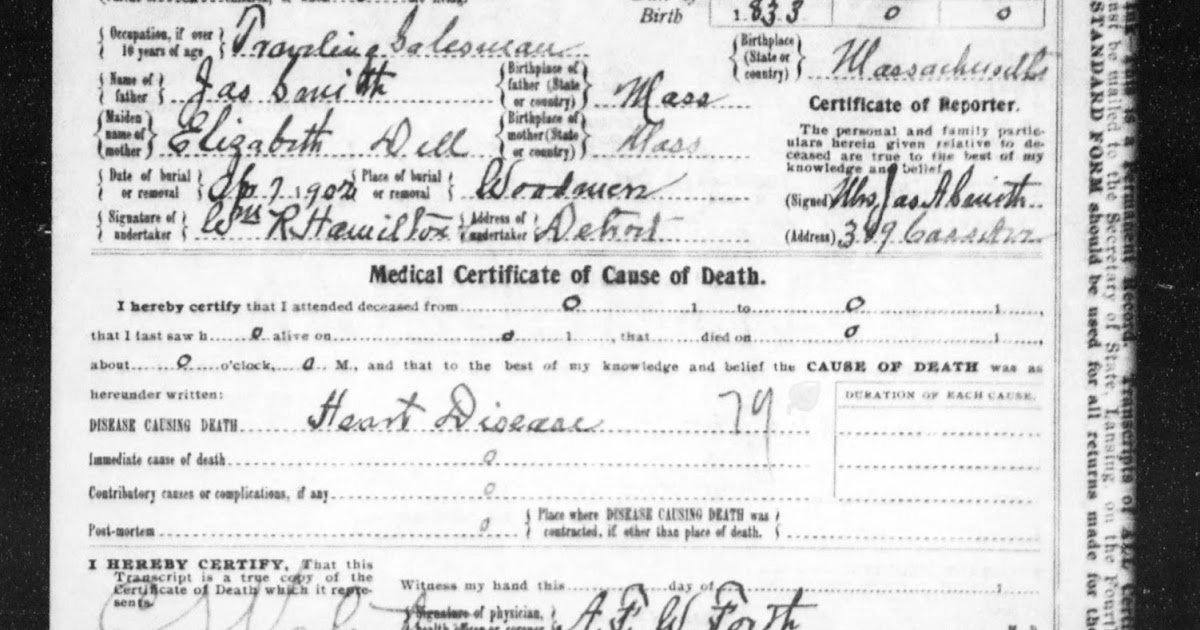 Birth 1833 0 0
Occupation, if over 10 years of age Traveling Salesman
Birthplace (State or country) Massachusetts
Name of father Jas Smith
Birthplace of father (State or country) Mass
Maiden name of mother Elizabeth Dell
Birthplace of mother (State or country) Mass
Certificate of Reporter.
The personal and family particu-
lars herein given relative to de-
ceased are true to the best of my
knowledge and belief
Date of burial or removal Ap 7 1902 Place of burial or removal Woodmere
(Signed) Mrs Jas A Smith
Signature of undertaker Wm R. Hamilton Address of undertaker Detroit
(Address) 389 Cass Ave
Medical Certificate of Cause of Death.
I hereby certify that I attended deceased from 0 1 to 0 1 ,
that I last saw h 0 alive on 0 1 , that died on 0 1 ,
about 0 o'clock, 0 M., and that to the best of my knowledge and belief the CAUSE OF DEATH was as
hereunder written:
DURATION OF EACH CAUSE.
DISEASE CAUSING DEATH Heart Disease 79
Immediate cause of death 0
Contributory causes or complications, if any 0
Post-mortem 0 Place where DISEASE CAUSING DEATH was contracted, if other than place of death.
I HEREBY CERTIFY, That this
Transcript is a true copy of the
Certificate of Death which it repre-
sents.
Witness my hand this day of 1
Signature of physician, A. F. W. Forth
STANDARD FORM should be used for all returns made for the
ust be mailed to the Secretary of State, Lansing, on the Fourt
ink. This is a Permanent Record. Transcripts of ALL Certi